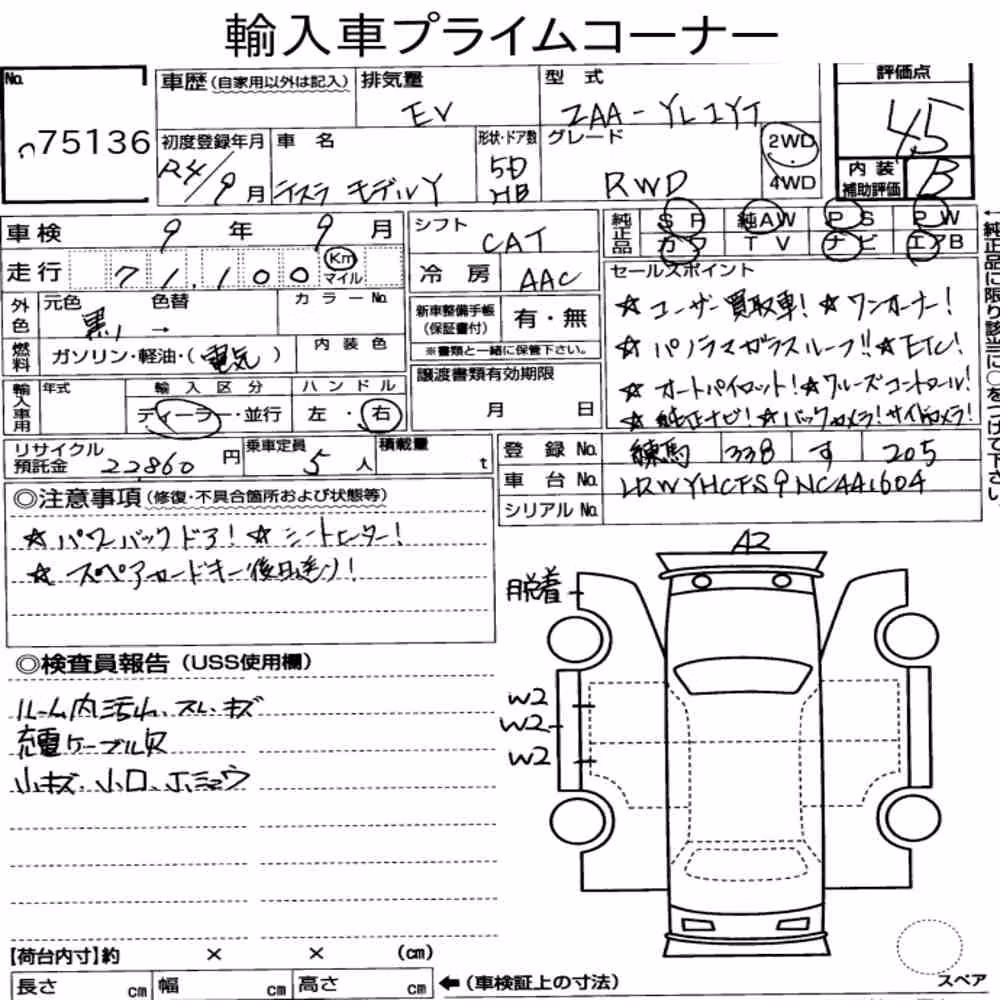 輸入車プライムコーナー
No. 75136
車歴(自家用以外は記入)
排気量 EV
型式 ZAA-YL1YT
評価点 4.5
初度登録年月 R4/9月
車名 テスラ モデルY
形状・ドア数 5D HB
グレード RWD
2WD
4WD
内装補助評価 B
車検 9年 9月
シフト CAT
純正品 SR 純AW PS PW
カワ TV ナビ エアB
走行 71,100 Km マイル
冷房 AAC
セールスポイント
☆ユーザー買取車!☆ワンオーナー!
☆パノラマガラスルーフ!!☆ETC!
☆オートパイロット!☆クルーズコントロール!
☆純正ナビ!☆バックカメラ!サイドカメラ!
←純正品に限り該当に○をつけて下さい。
外色 元色 黒 色替 → カラーNo.
新車整備手帳(保証書付) 有・無
※書類と一緒に保管下さい。
燃料 ガソリン・軽油・(電気)
内装色
輸入車用 年式 輸入区分 ディーラー・並行 ハンドル 左・右
譲渡書類有効期限 月 日
リサイクル預託金 22860円
乗車定員 5人
積載量 t
登録No. 練馬 338 す 205
車台No. LRWYHCFS9NCAA1604
シリアルNo.
◎注意事項(修復・不具合箇所および状態等)
☆パワーバックドア!☆シートヒーター!
☆スペアカードキー後日送り!
◎検査員報告(USS使用欄)
ルーム内汚れ、スレ、キズ
充電ケーブル欠
小キズ、小凹、小ミョウ
A2
脱着
W2
W2
W2
[荷台内寸]約 × × (cm)
長さ cm 幅 cm 高さ cm
←(車検証上の寸法)
スペア